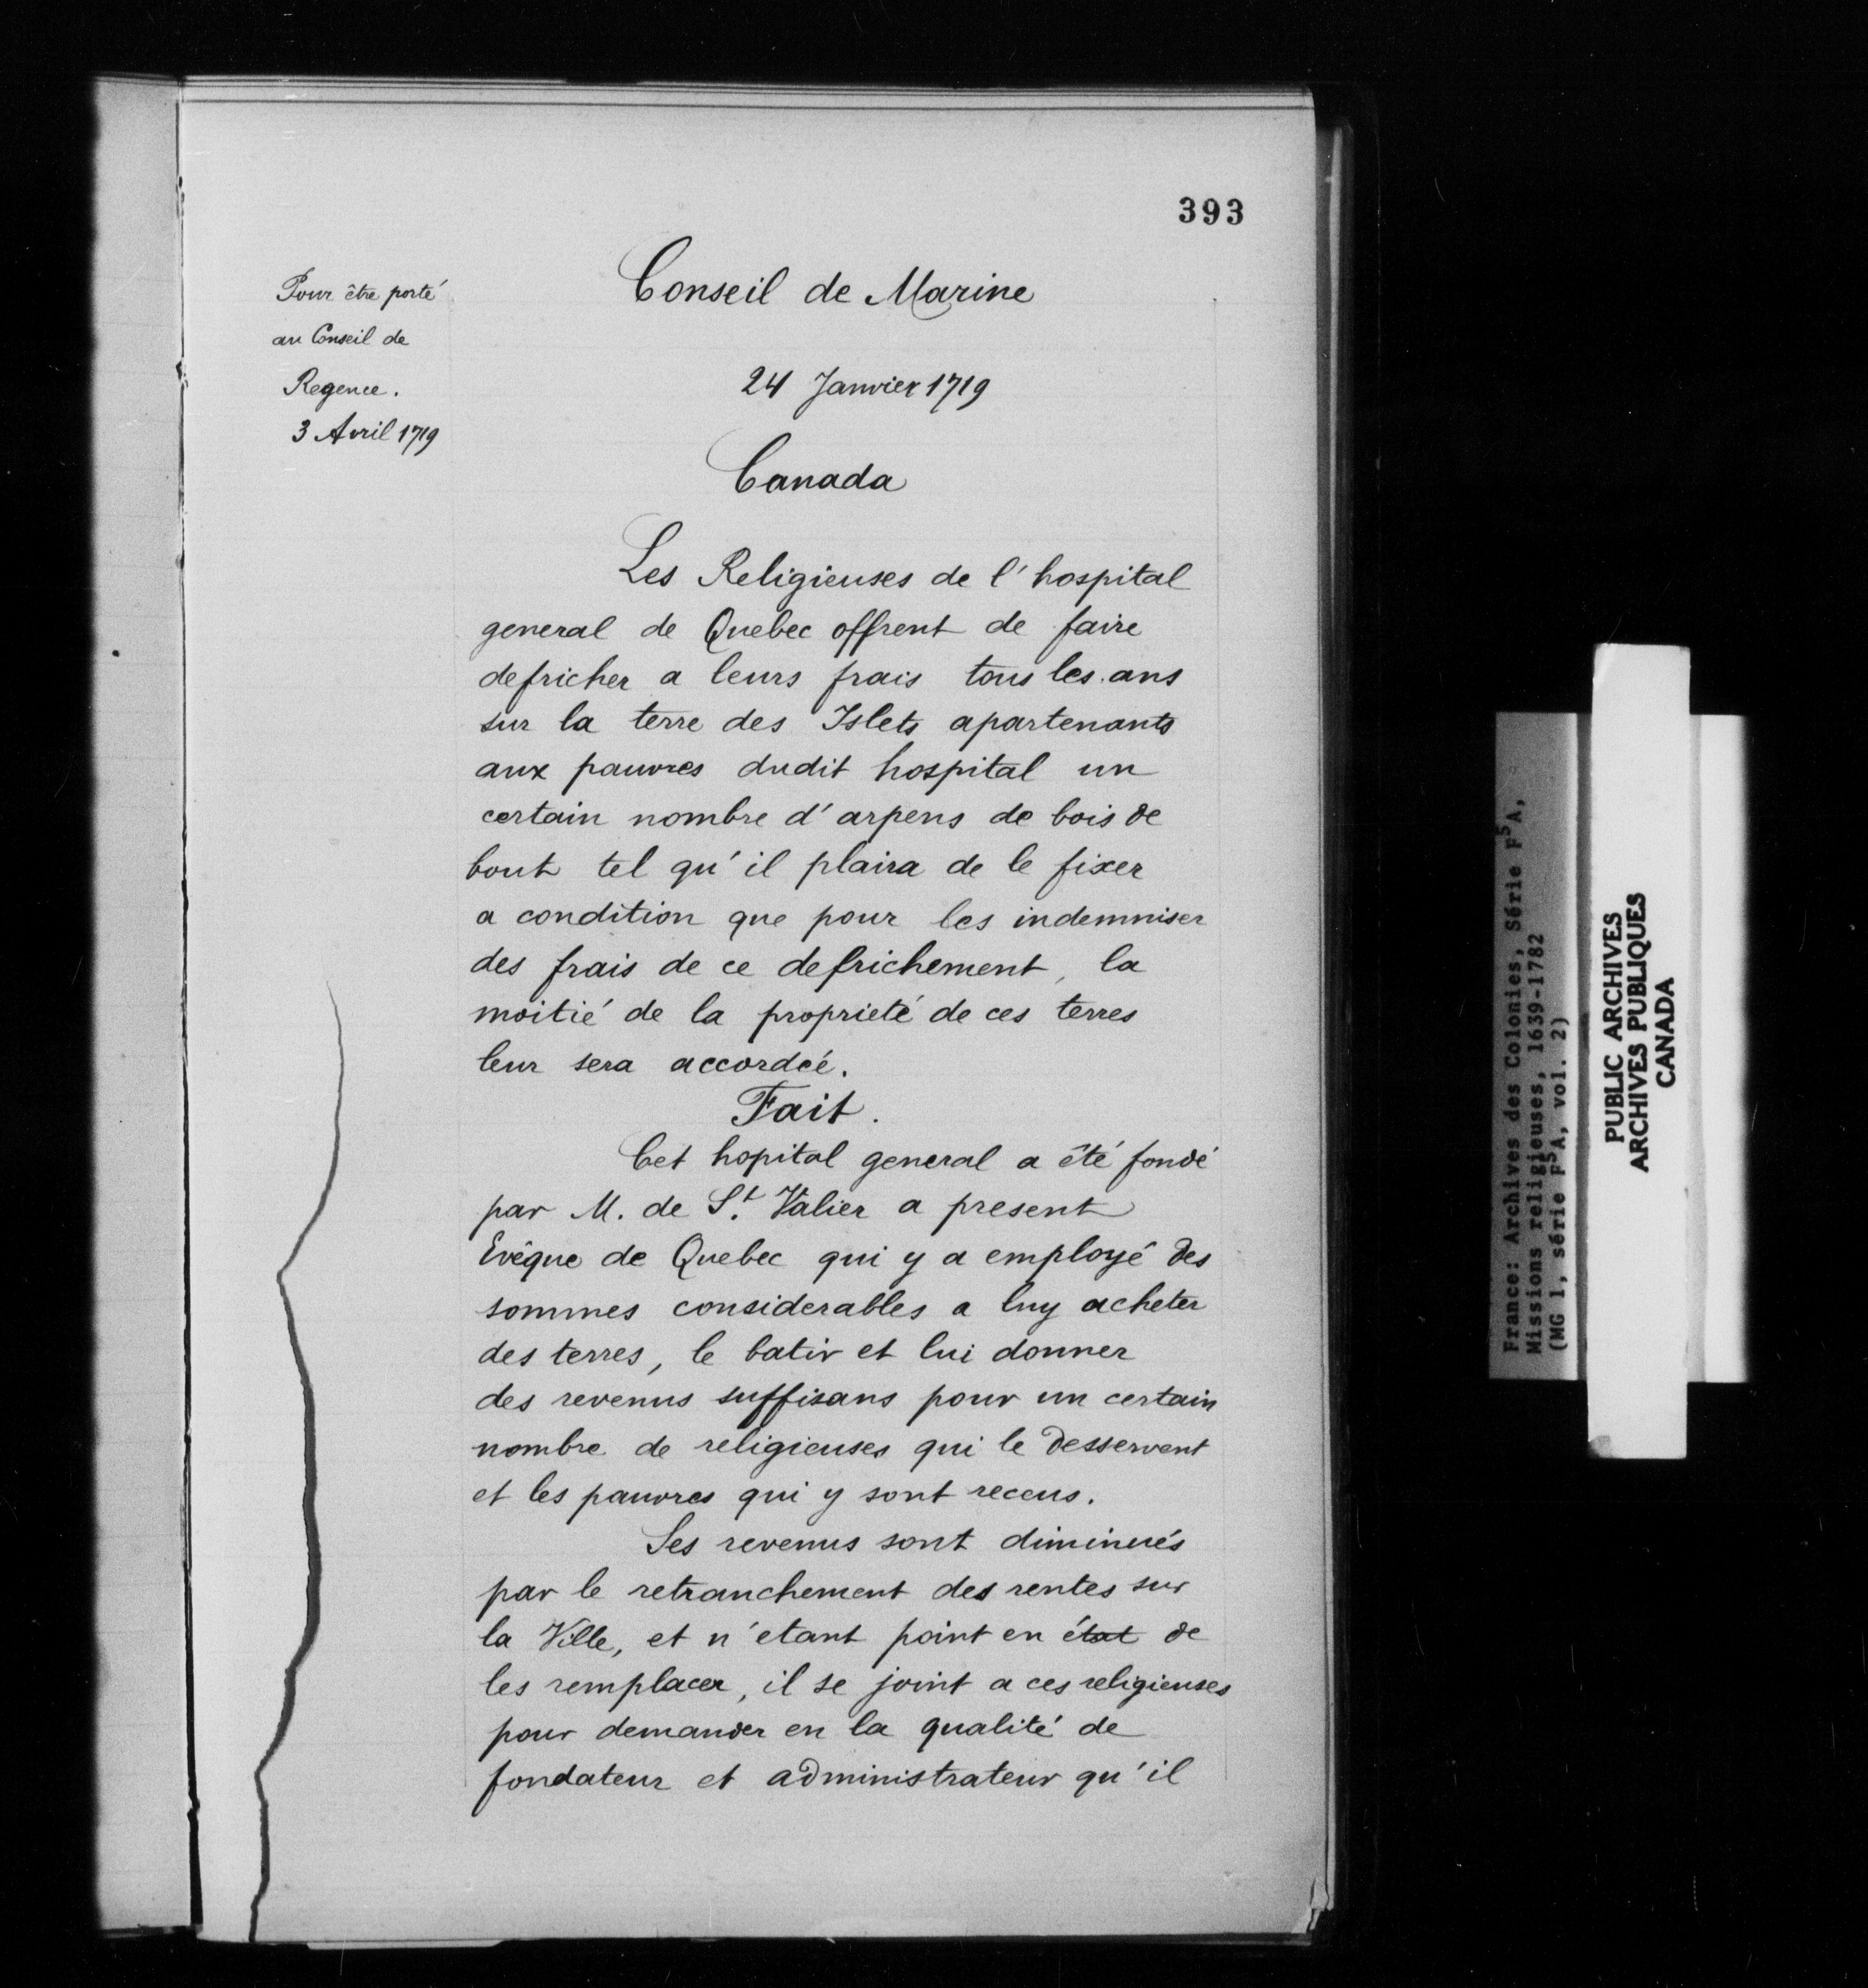 393
Pour être porté
au Conseil de
Regence.
3 Avril 1719
Conseil de Marine
24 Janvier 1719
Canada
Les Religieuses de l'hospital
general de Quebec offrent de faire
defricher a leurs frais tous les ans
sur la terre des Islets apartenants
aux pauvres dudit hospital un
certain nombre d'arpens de bois de
bout tel qu'il plaira de le fixer
a condition que pour les indemniser
des frais de ce defrichement, la
moitié de la proprieté de ces terres
leur sera accordéé.
Fait.
Cet hopital general a été fondé
par M. de St. Valier a present
Evêque de Quebec qui y a employé des
sommes considerables a luy acheter
des terres, le batir et lui donner
des revenus suffisans pour un certain
nombre de religieuses qui le desservent
et les pauvres qui y sont receus.
Ses revenus sont diminués
par le retranchement des rentes sur
la Ville, et n'etant point en état de
les remplacer, il se joint a ces religieuses
pour demander en la qualité de
fondateur et administrateur qu'il
France: Archives des Colonies, Série F5A,
Missions religieuses, 1639-1782
(MG 1, série F5A, vol. 2)
PUBLIC ARCHIVES
ARCHIVES PUBLIQUES
CANADA